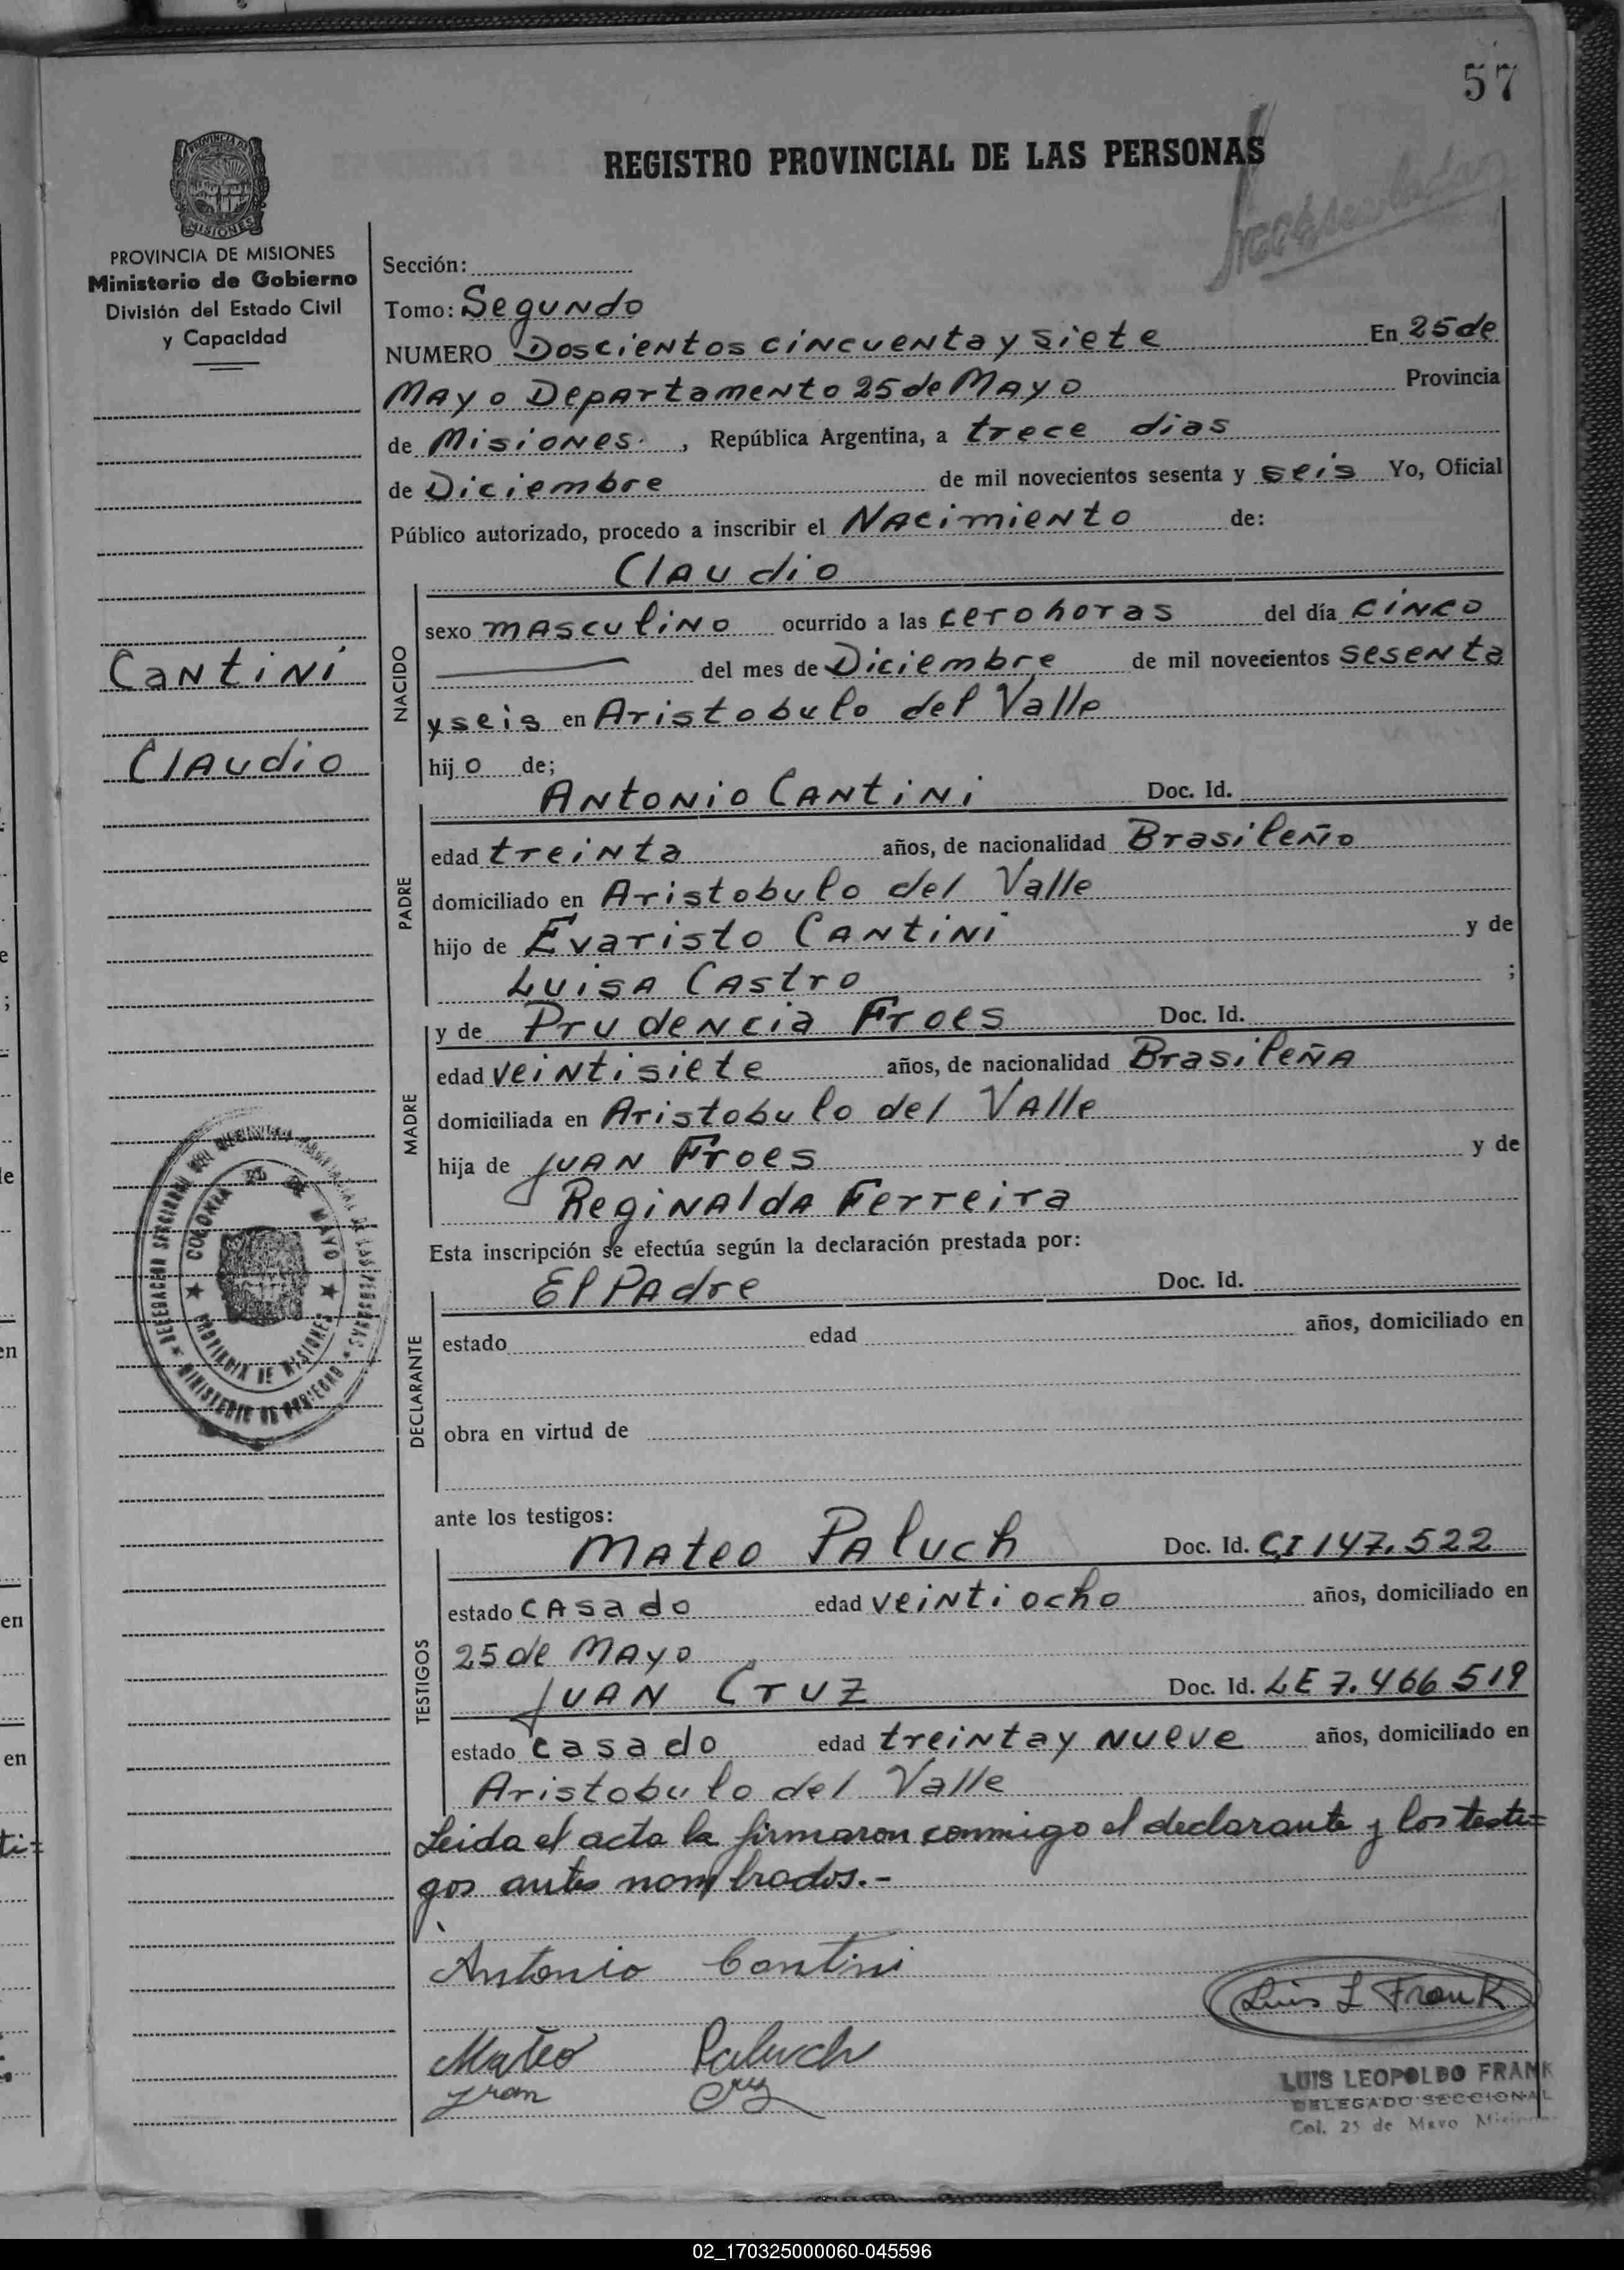 57
REGISTRO PROVINCIAL DE LAS PERSONAS
PROVINCIA DE
MISIONES
PROVINCIA DE MISIONES
Ministerio de Gobierno
División del Estado Civil
y Capacidad
Sección:
Tomo: Segundo
NUMERO Doscientos cincuenta y siete En 25 de
Mayo Departamento 25 de Mayo Provincia
de Misiones. , República Argentina, a trece dias
de Diciembre de mil novecientos sesenta y seis Yo, Oficial
Público autorizado, procedo a inscribir el Nacimiento de:
Claudio
NACIDO
sexo masculino ocurrido a las cero horas del día cinco
del mes de Diciembre de mil novecientos sesenta
y seis en Aristobulo del Valle
hijo de;
Cantini
Claudio
PADRE
Antonio Cantini Doc. Id.
edad treinta años, de nacionalidad Brasileño
domiciliado en Aristobulo del Valle
hijo de Evaristo Cantini y de
Luisa Castro ;
MADRE
y de Prudencia Froes Doc. Id.
edad veintisiete años, de nacionalidad Brasileña
domiciliada en Aristobulo del Valle
hija de Juan Froes y de
Reginalda Ferreira
Esta inscripción se efectúa según la declaración prestada por:
DECLARANTE
El Padre Doc. Id.
estado edad años, domiciliado en
obra en virtud de
COLONIA 25 DE MAYO
PROVINCIA DE MISIONES
MINISTERIO DE GOBIERNO
ante los testigos:
TESTIGOS
Mateo Paluch Doc. Id. CI 147.522
estado casado edad veintiocho años, domiciliado en
25 de Mayo
Juan Cruz Doc. Id. LE 7.466 519
estado casado edad treinta y nueve años, domiciliado en
Aristobulo del Valle
Leida el acta la firmaron conmigo el declarante y los testi=
gos antes nombrados.-
Antonio Cantini
Luis L Frank
Mateo Paluch
Juan Cruz
LUIS LEOPOLDO FRANK
DELEGADO SECCIONAL
Col. 25 de Mayo
02_170325000060-045596